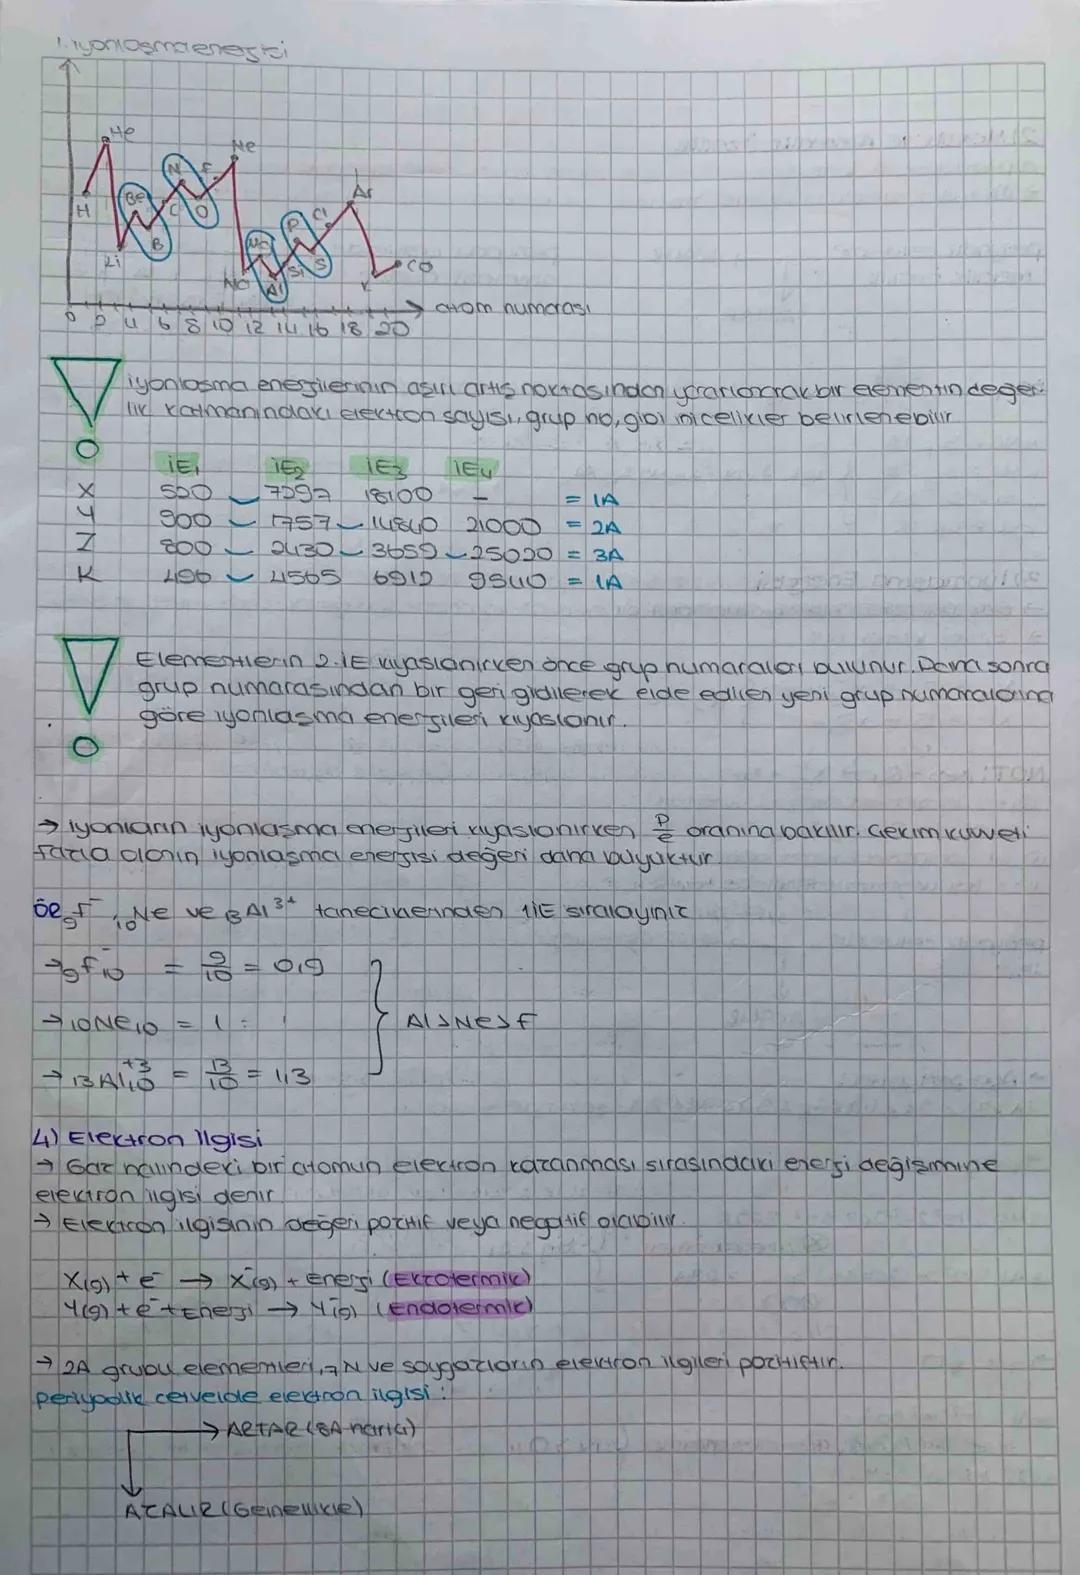 1. iyonlaşma enerjisi
He
Ne
N
F
Be
Ar
H
C
O
P
Cl
B
Mg
Li
Si
S
Ca
Na
Al
K
atom numarası
0 2 4 6 8 10 12 14 16 18 20
iyonlaşma enerjilerinin aşırı artış noktasından yararlanarak bir elementin değer-
lik katmanındaki elektron sayısı, grup no, gibi nicelikler belirlenebilir
İE1 İE2 İE3 İE4
X 520 7297 18100 - = 1A
Y 900 1757 14840 21000 = 2A
Z 800 2430 3659 25020 = 3A
K 496 4565 6912 9540 = 1A
Elementlerin 2.İE kıyaslanırken önce grup numaraları bulunur. Daha sonra
grup numarasından bir geri gidilerek elde edilen yeni grup numaralarına
göre iyonlaşma enerjileri kıyaslanır.
→ iyonların iyonlaşma enerjileri kıyaslanırken p/e oranına bakılır. Çekim kuvveti
fazla olanın iyonlaşma enerjisi değeri daha büyüktür.
ör 9F-, 10Ne ve 13Al3+ taneciklerinden 1İE sıralayınız
→ 9F10- = 9/10 = 0,9
→ 10Ne10 = 1
→ 13Al10+3 = 13/10 = 1,3
Al>Ne>F
4) Elektron ilgisi
→ Gaz halindeki bir atomun elektron kazanması sırasındaki enerji değişimine
elektron ilgisi denir.
→ Elektron ilgisinin değeri pozitif veya negatif olabilir.
X(g) + e- → X-(g) + Enerji (Ekzotermik)
Y(g) + e- + Enerji → Y-(g) (Endotermik)
→ 2A grubu elementleri, 7N ve soygazların elektron ilgileri pozitiftir.
periyodik cetvelde elektron ilgisi :
→ ARTAR (8A hariç)
AZALIR (Genellikle)